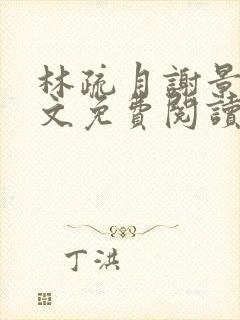 林疏月謝景
文免費閱讀
丁洪